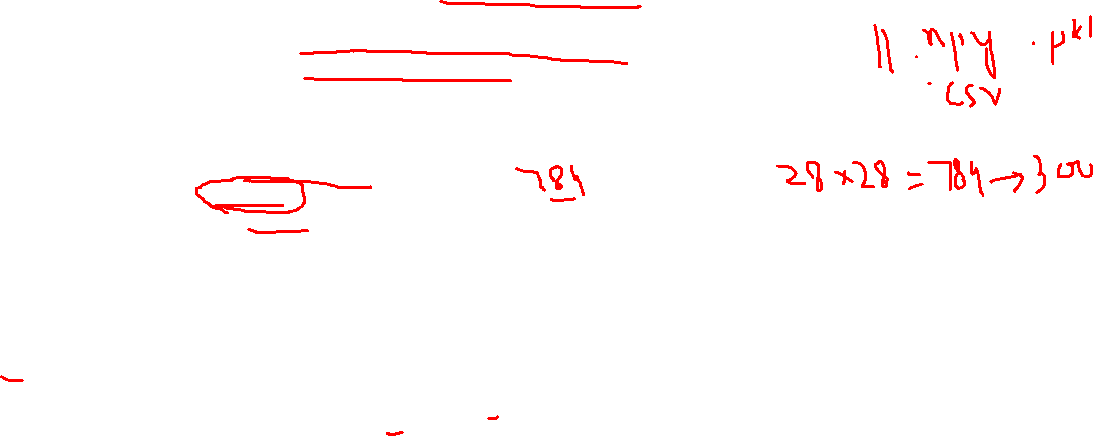 || .npy .pkl
.csv
784 28×28=784→300